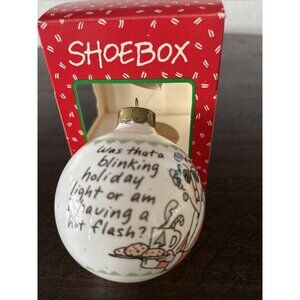 SHOEBOX
was that a
blinking
holiday
light or am
i having a
hot flash?